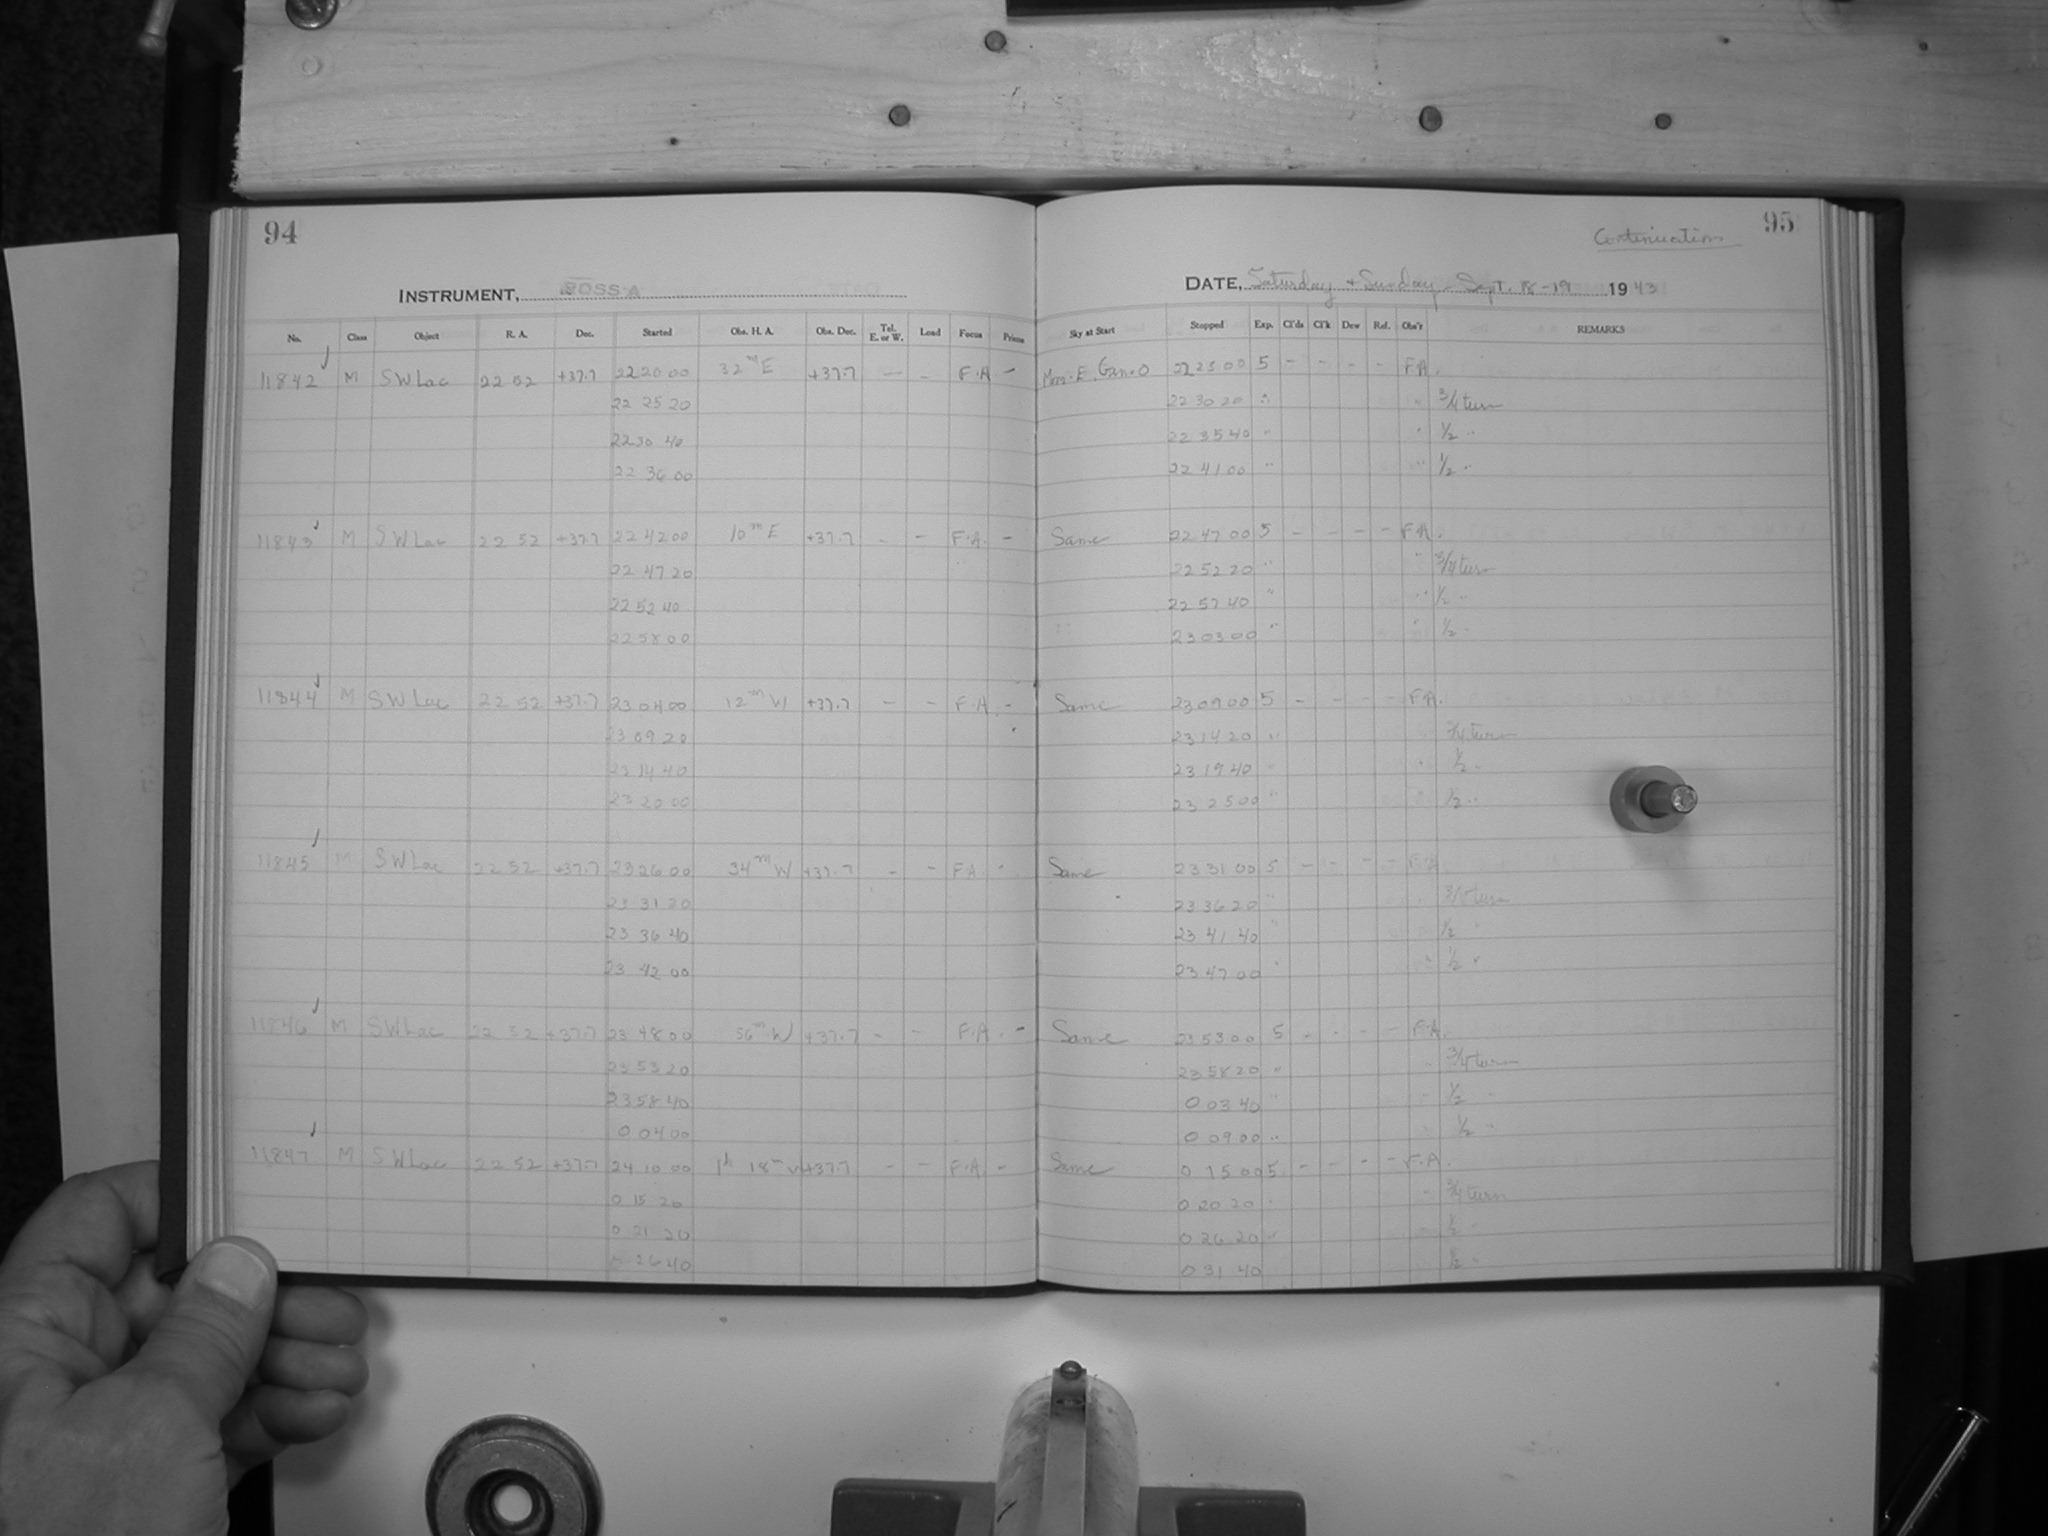 94
INSTRUMENT, ROSS A
No. Class Object R. A. Dec. Started Obs. H. A. Obs. Dec. Tel. E. or W. Load Focus Prisms
11842 M SW Lac 22 52 +37.7 22 20 00 32 m E +37.7 — - F.A -
22 25 20
22 30 40
22 36 00
11843 M SW Lac 22 52 +37.7 22 42 00 10 m E +37.7 - - F.A. -
22 47 20
22 52 40
22 58 00
11844 M SW Lac 22 52 +37.7 23 04 00 12 m W +37.7 - - F.A. -
23 09 20
23 14 40
23 20 00
11845 M SW Lac 22 52 +37.7 23 26 00 34 m W +37.7 - - F A -
23 31 20
23 36 40
23 42 00
11846 M SW Lac 22 52 +37.7 23 48 00 56 m W +37.7 - - F.A. -
23 53 20
23 58 40
0 04 00
11847 M SW Lac 22 52 +37.7 24 10 00 1h 18 m W +37.7 - - F.A -
0 15 20
0 21 20
26 40
95
Continuation
DATE, Saturday + Sunday - Sept. 18-19 1943
Sky at Start Stopped Exp. Cl'ds Cl'k Dew Ref. Obs'r REMARKS
E. 22 25 00 5 - - - - F A.
22 30 20 " " 3/4 turn
22 35 40 " " 1/2 "
22 41 00 " " 1/2 "
Same 22 47 00 5 - - - - F A.
22 52 20 " " 3/4 turn
22 57 40 " " 1/2 "
23 03 00 " " 1/2 "
Same 23 09 00 5 - - - - F A.
23 14 20 " " 3/4 turn
23 19 40 " " 1/2 "
23 25 00 " " 1/2 "
Same 23 31 00 5 - - - - F A.
23 36 20 " " 3/4 turn
23 41 40 " " 1/2 "
23 47 00 " " 1/2 "
Same 23 53 00 5 - - - - F.A.
23 58 20 " " 3/4 turn
0 03 40 " " 1/2 "
0 09 00 " " 1/2 "
Same 0 15 00 5 - - - - F.A.
0 20 20 " " 3/4 turn
0 26 20 " " 1/2 "
0 31 40 1/2 "